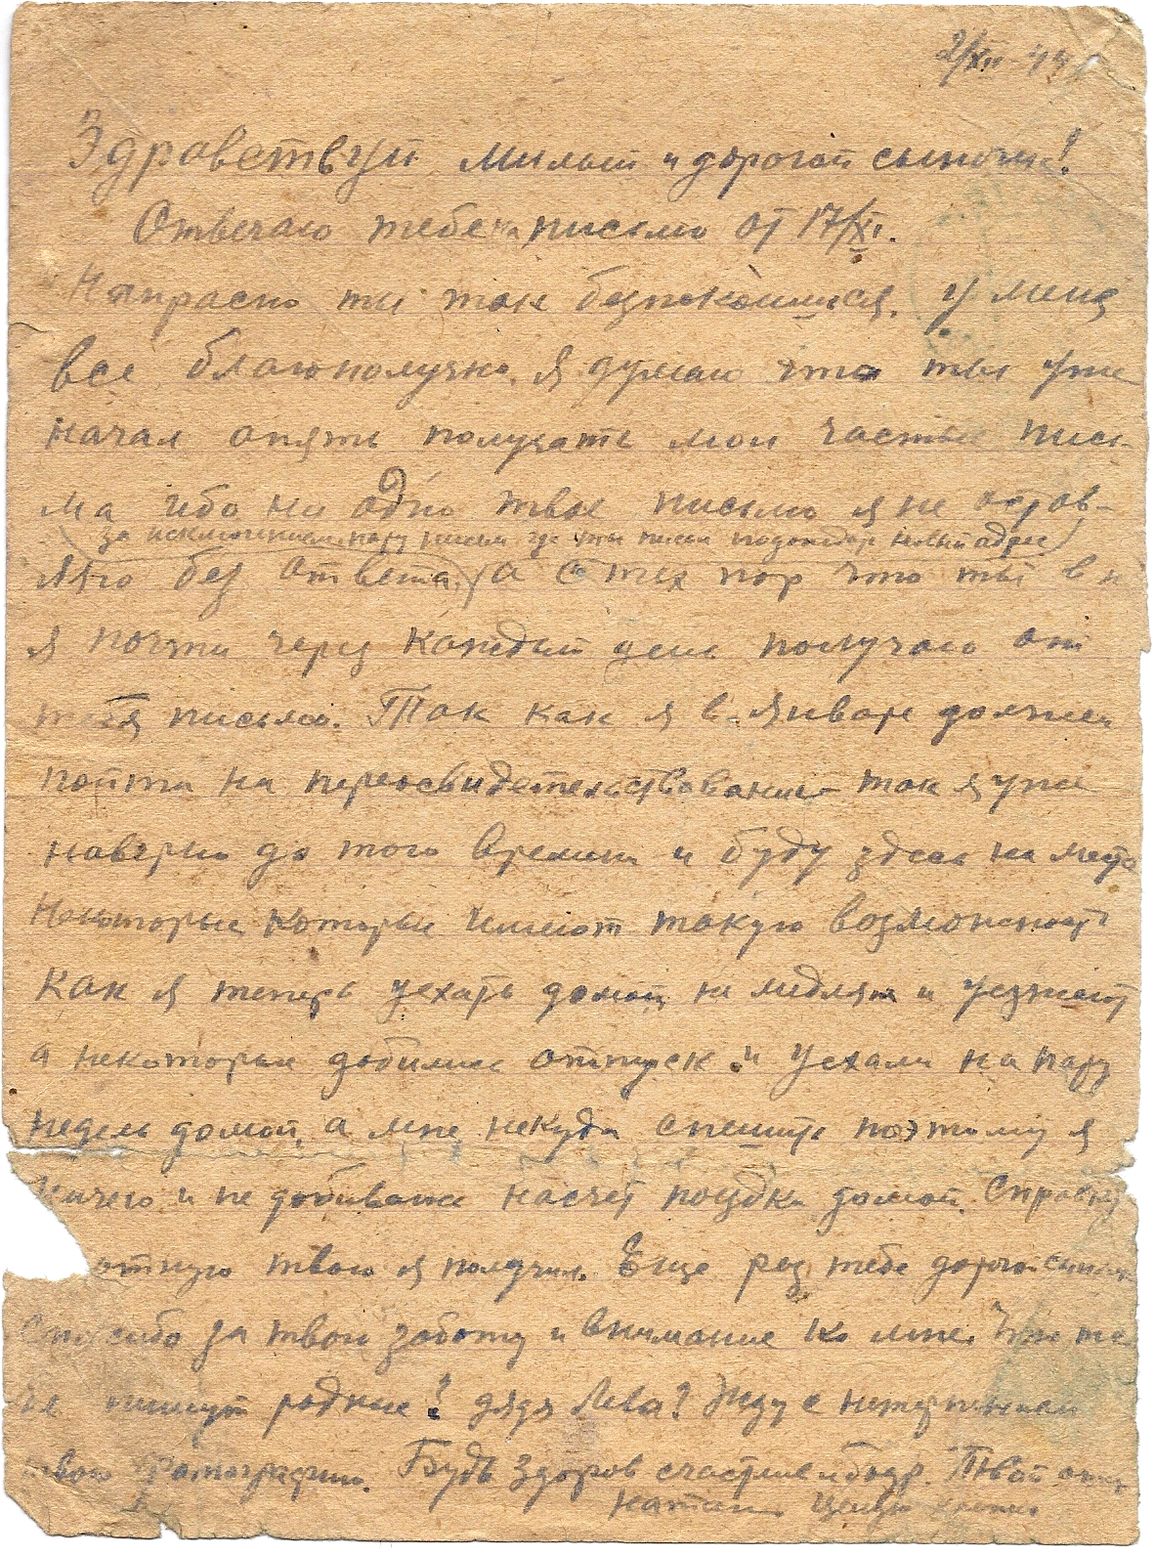 2/XII-44 г
Здравствуй милый и дорогой сыночик!
Отвечаю тебе на письмо от 17/XI.
Напрасно ты так безпокоишся. У меня
все благополучно. Я думаю что ты уже
начал опять получать мои частые пись-
ма ибо ни одно твое письмо я не остав-
за исключением пару писем где ты писал подождат новый адрес)
ляю без ответа. (А с тех пор что ты в н
я почти через каждый день получаю от
тебя письмо. Так как я в январе должен
пойти на переосвидетельствование так я уже
наверно до того времени и буду здесь на месте
Некоторые которые имеют такую возможность
как я теперь уехать домой не медлят и уезжают
а некоторые добились отпуск и уехали на пару
недель домой, а мне некуда спешить поэтому я
ничего и не добиваюсь насчет поездки домой. Справку
отную твою я получил. Еще раз тебе дорогой сынок
спасибо за твою заботу и внимание ко мне. Что те
бе пишут родные? дядя Лева? Жду с нетерпением
твою фотографию. Будь здоров счастлив и бодр. Твой отец
Натан Целую крепко